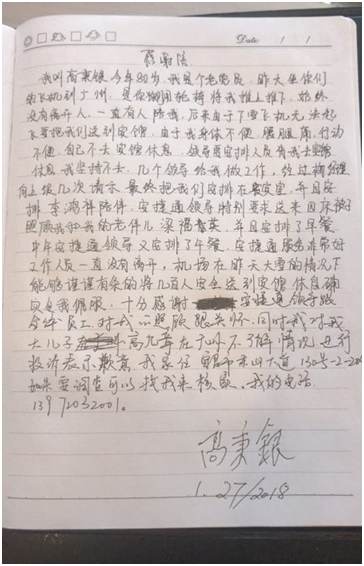 Date / /
感谢信
我叫高秉银今年80岁，我是个老党员，昨天坐你们
的飞机到广州，是你们用轮椅将我推上推下，始终
没有离开人，一直有人陪我，后来由于下雪飞机无法起
飞要把我们送到宾馆，由于我身体不便，腰腿痛，行动
不便，自己不去宾馆休息，领导要安排人员背我去宾馆
休息，我坚持不去，几个领导给我做工作，经过
向上级几次请示最终把我们安排在贵宾室，并且安
排李鸿祥陪伴，安捷通领导特别要求送来四床被子
照顾我和我的老伴儿梁福，并且安排了早餐
中午安捷通领导又安排了午餐，安捷通服务非常好
工作人员一直没有离开，机场在昨天大雪的情况下
能够谨谨有条的将几百人安全送到宾馆休息确
实令我佩服，十分感谢安捷通领导及
全体员工对我的照顾跟关怀，同时我对我
大儿子高九等在了解不了解情况进行
投诉表示歉意，我家住宜昌市东山大道130号-2-20
如果需调查可以找我来核实，我的电话
13972032001。
高秉銀
1.27/2018